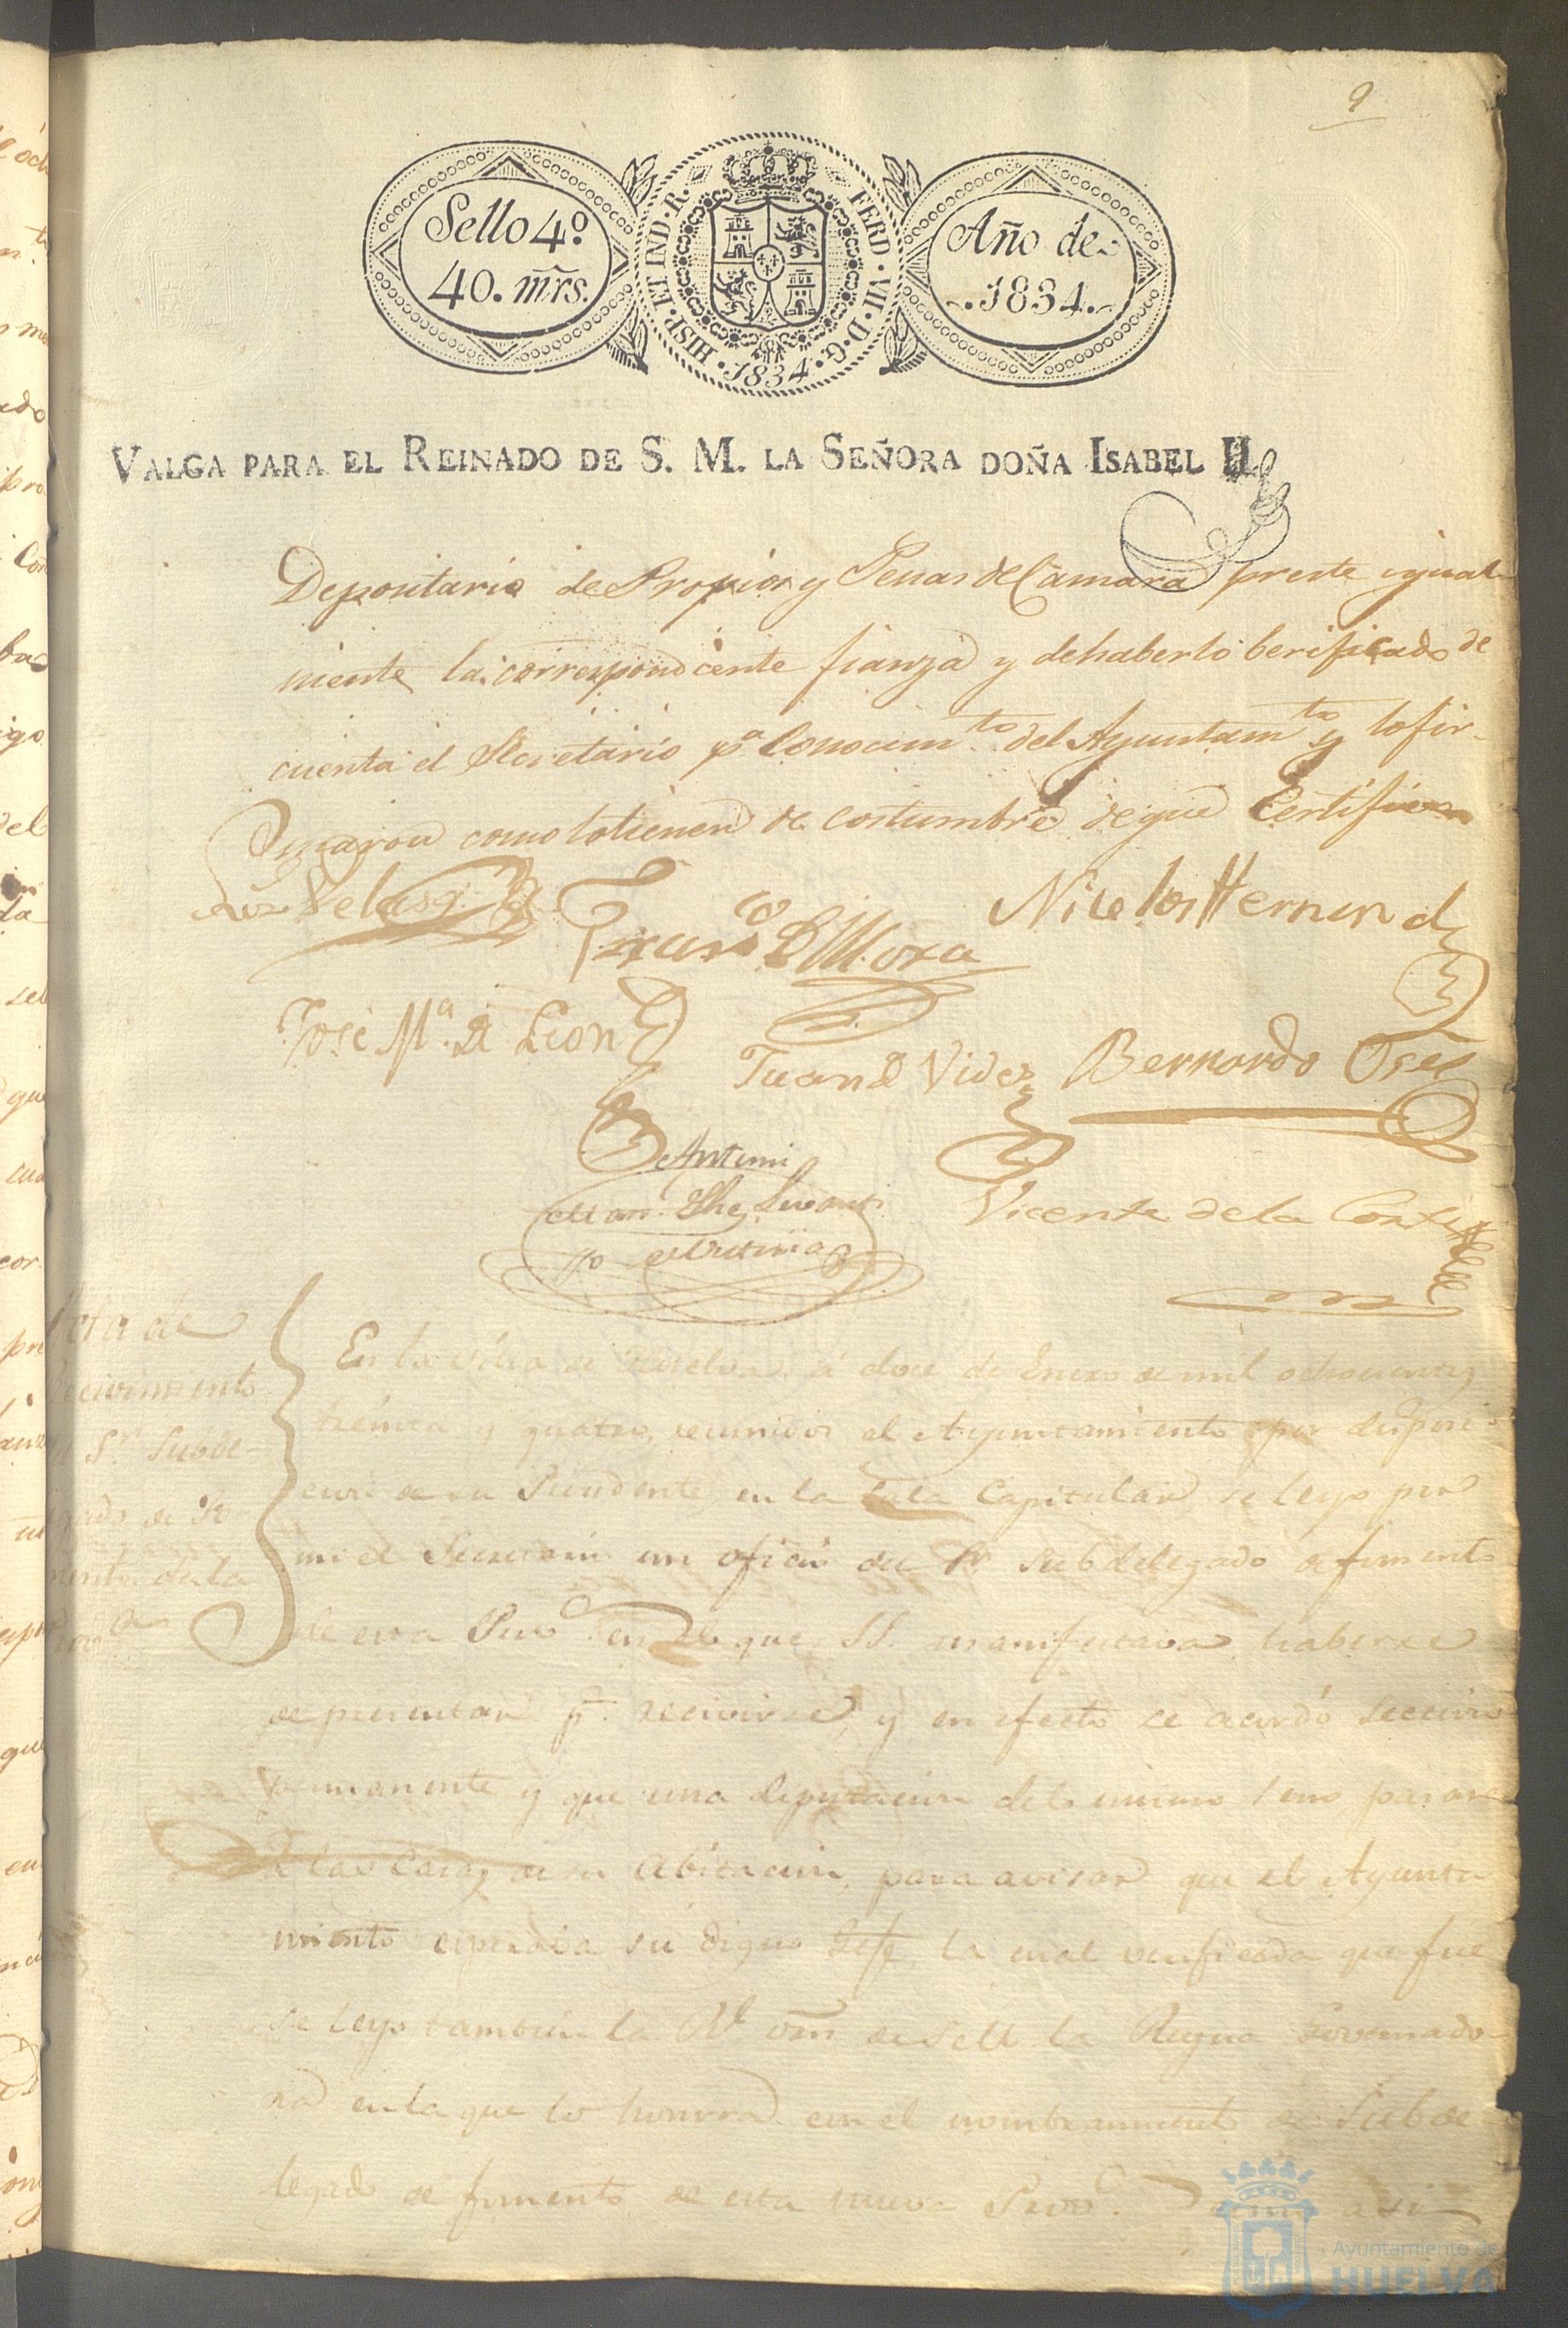 9
Sello 4º
40. mrs.
HISP. ET IND. R. FERD. VII. D. G. 1834.
Año de
1834.
VALGA PARA EL REINADO DE S. M. LA SEÑORA DOÑA ISABEL II.
Depositario de Propios y Penas de Camara preste igual
mente la correspondiente fianza y de haberlo berificado de
cuenta el Secretario pª Conocimto. del Ayuntamto y lo fir-
maron como lo tienen de costumbre de que Certifico
Velasqz. Franco D Mora Nicolas Hernand
José Mª. D Leon
Juan D Vides Bernardo
Antemi
Vicente de la Corte
Acta de
recivimiento
Sr. Subde-
legado de Fo
mento de la
Provª
En la villa de Huelva á doce de Enero de mil ochocientos
treinta y quatro, reunidos el Ayuntamiento por disposi
cion de su Presidente en la Sala Capitular, se leyo por
mi el Secretario un oficio del Sr Subdelegado de fomento
de esta Provª. en el que SS. manifestava haberse
de presentar pª. recivirse, y en efecto se acordó Seccion
permanente y que una diputacion del mismo Seno pasara
a las Casas de su abitacion, para avisar que el Ayunta
miento esperava su digno Gefe, la cual verificada que fue
se leyo tambien la Rl orn de S M la Reyna Governado-
ra en la que lo honra con el nombramiento de Subde-
legado de fomento de esta nueva Provª.
Ayuntamiento de
HUELVA